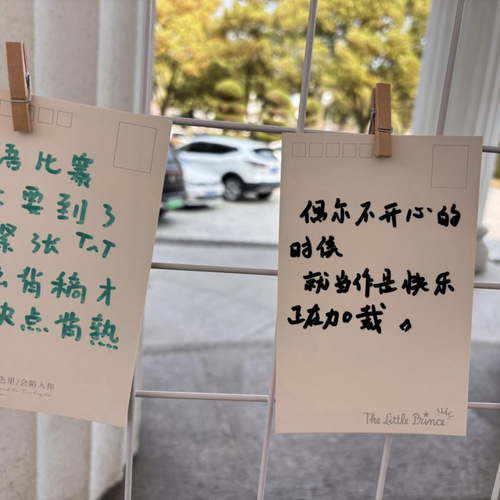 语比赛
要到了
紧张TnT
背稿才
快点背熟
色里/会陷入你
偶尔不开心的
时候
就当作是快乐
正在加载。
The Little Prince